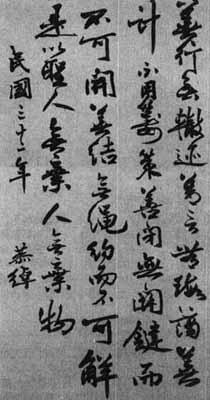 善行無轍迹善言無瑕謫善
計不用籌策善閉無關鍵而
不可開善結無繩約而不可解
是以聖人無棄人無棄物
民國三十二年